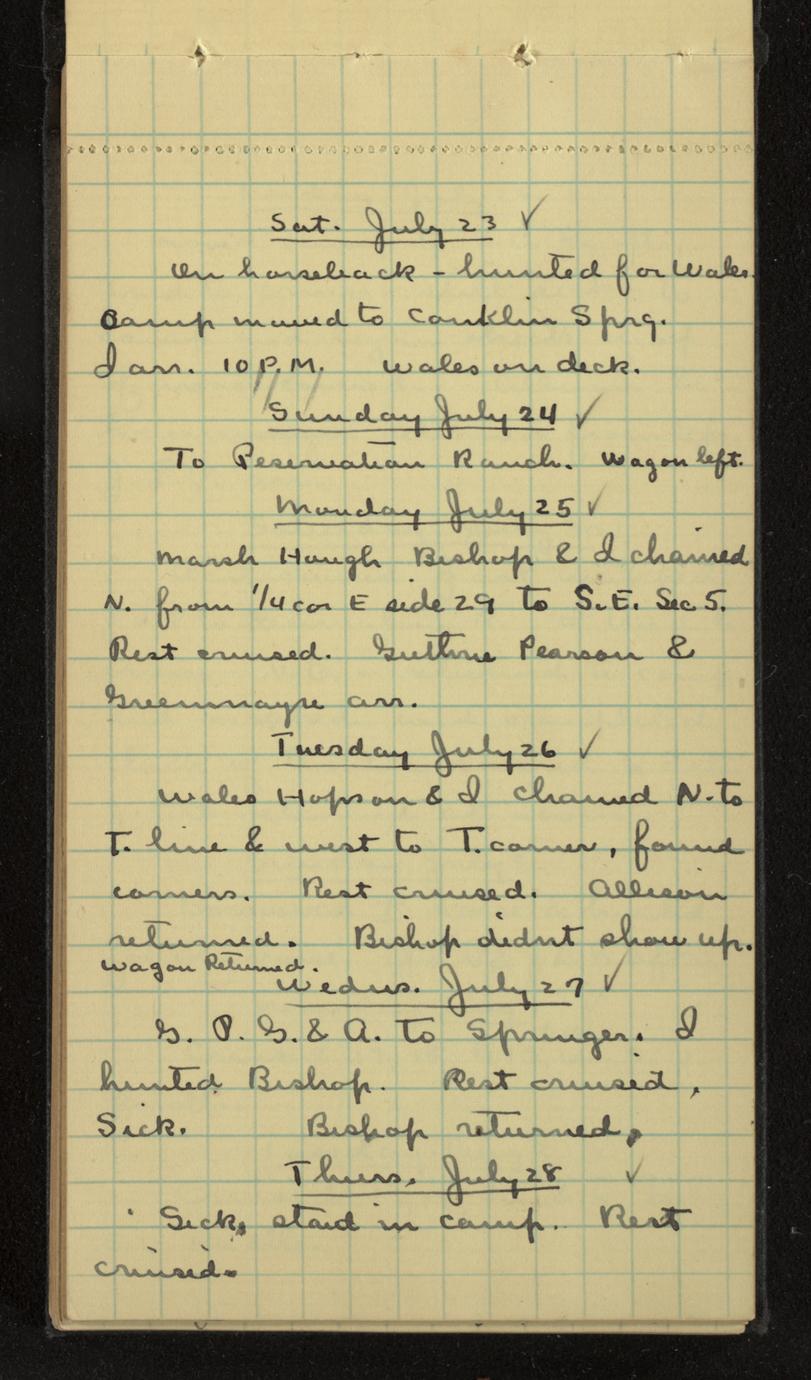 Sat. July 23 ✓
On horseback – hunted for Wales.
Camp moved to Conklin Sprg.
I arr. 10 P.M. Wales on deck.
Sunday July 24 ✓
To Reservation Ranch. Wagon left.
Monday July 25 ✓
Marsh Hough Bishop & I chained
N. from 1/4 cor E side 29 to S.E. Sec 5.
Rest cruised. Guthrie Pearson &
Greenmayre arr.
Tuesday July 26 ✓
Wales Hopson & I chained N. to
T. line & west to T. corner, found
corners. Rest cruised. Allison
returned. Bishop didnt show up.
Wagon Returned.
Wedns. July 27 ✓
G. P. G. & A. to Springer. I
hunted Bishop. Rest cruised,
Sick. Bishop returned,
Thurs. July 28 ✓
Sick, staid in camp. Rest
cruised.